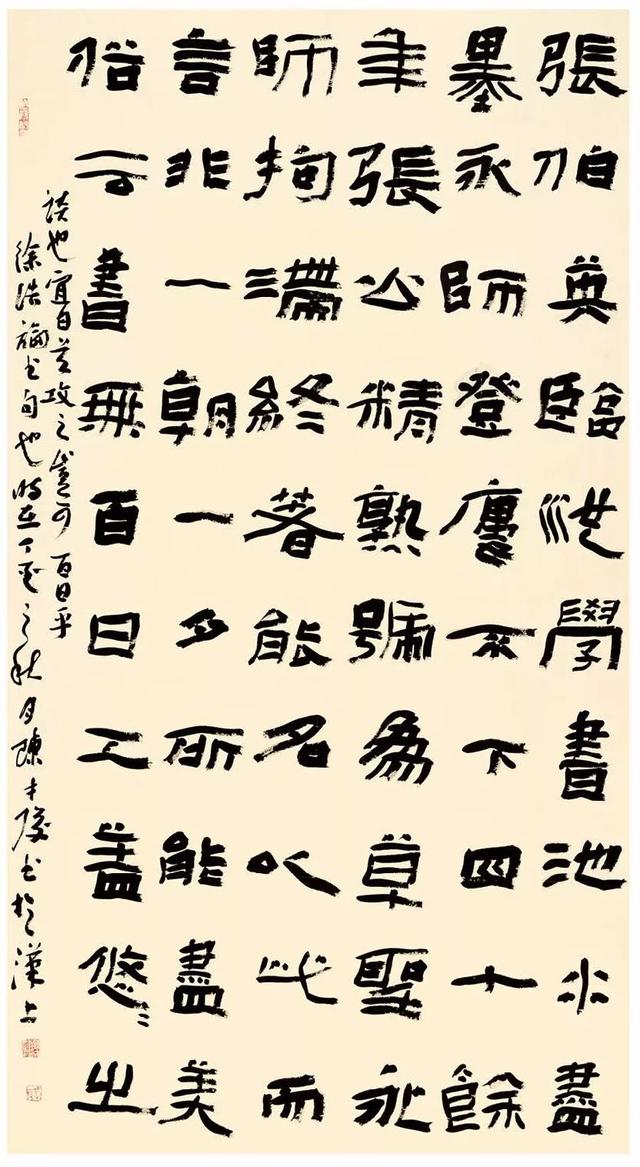 張伯英臨池學書池水盡
墨永師登樓不下四十餘
年張公精熟號為草聖永
師拘滯終著能名以此而
言非一朝一夕所能盡美
俗云書無百日工蓋悠悠之
談也宜白首攻之豈可百日乎
徐浩論書句也時在丁亥之秋月陳陵書於漢上